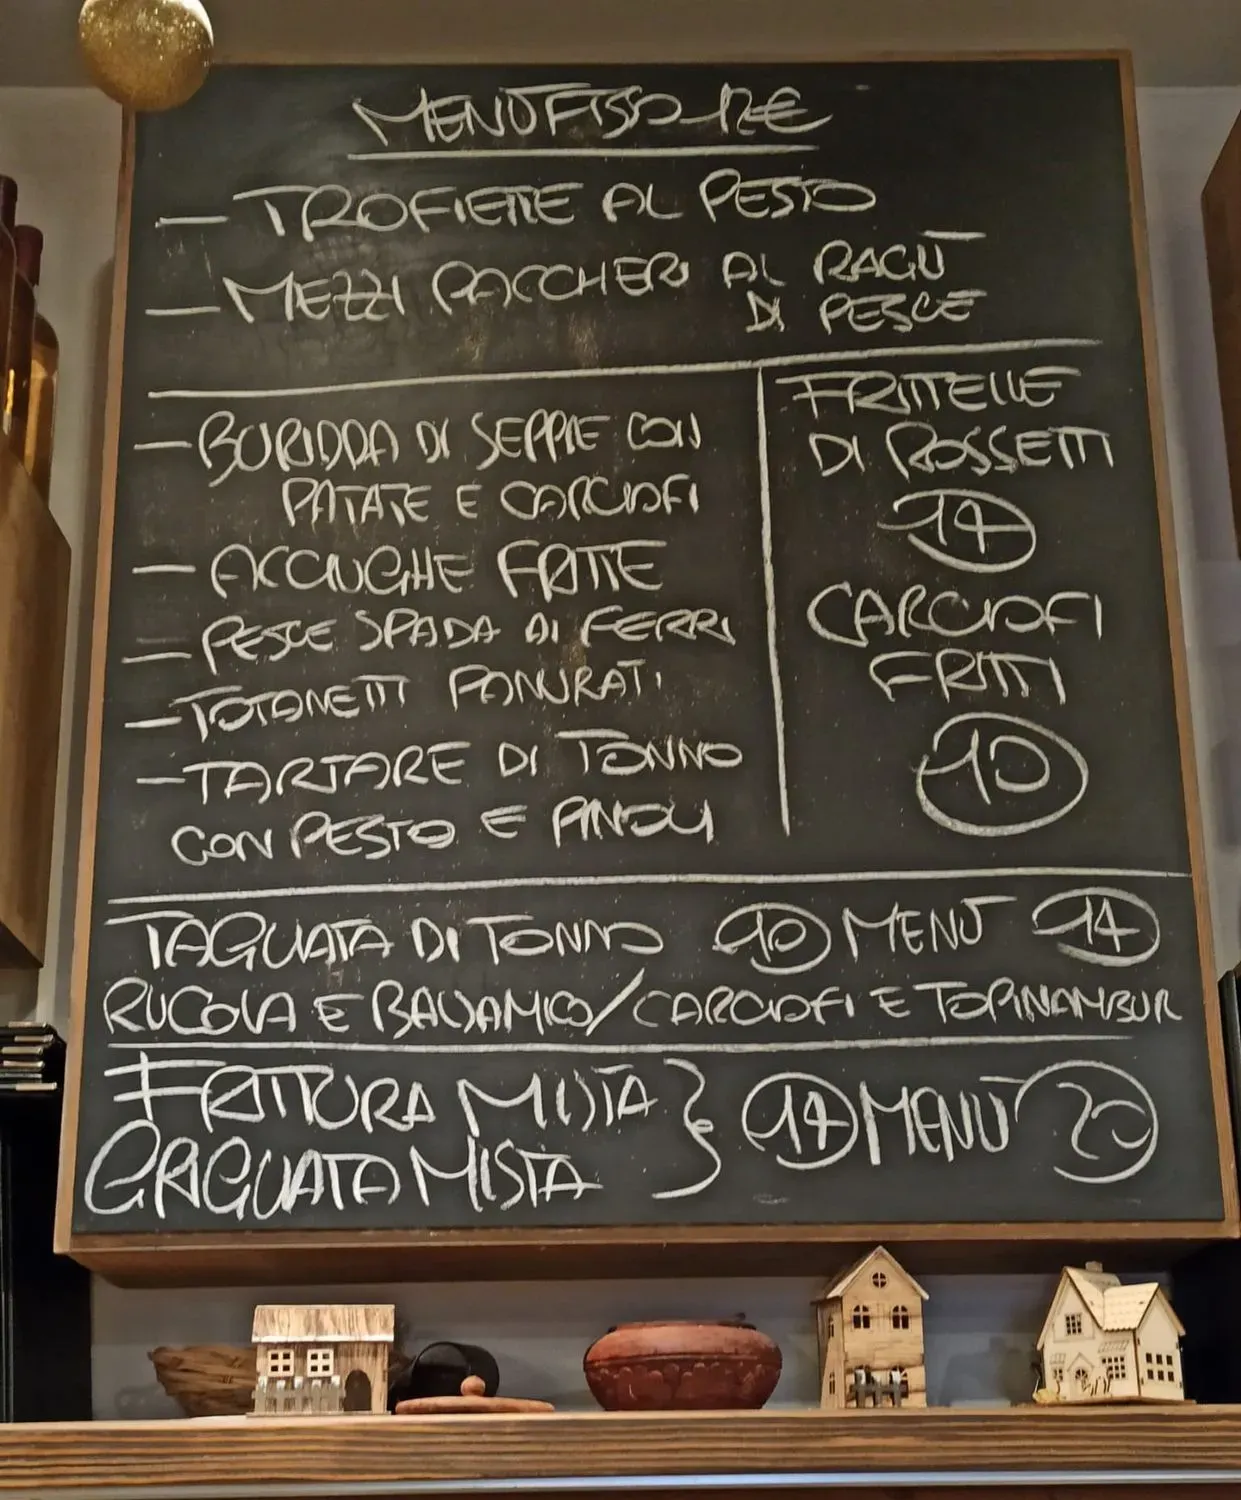 MENÙ FISSO 12€
– TROFIETTE AL PESTO
– MEZZI PACCHERI AL RAGÙ
DI PESCE
– BURIDDA DI SEPPIE CON
PATATE E CARCIOFI
– ACCIUGHE FRITTE
– PESCE SPADA AI FERRI
– TOTANETTI PANURATI
– TARTARE DI TONNO
CON PESTO E PINOLI
FRITTELLE
DI ROSSETTI
14
CARCIOFI
FRITTI
10
TAGLIATA DI TONNO 10 MENÙ 14
RUCOLA E BALSAMICO/CARCIOFI E TOPINAMBUR
FRITTURA MISTA } 14 MENÙ 20
GRIGLIATA MISTA